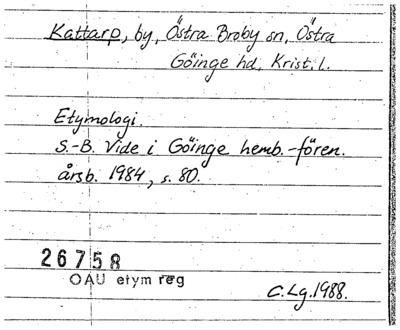 Kattarp, by, Östra Broby sn, Östra
Göinge hd, Krist. l.
Etymologi.
S.-B. Vide i Göinge hemb.-fören.
årsb. 1984, s. 80.
26758
OAU etym reg
C.Lg.1988.